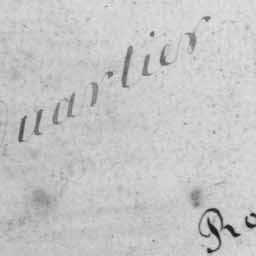 uartier
Ro